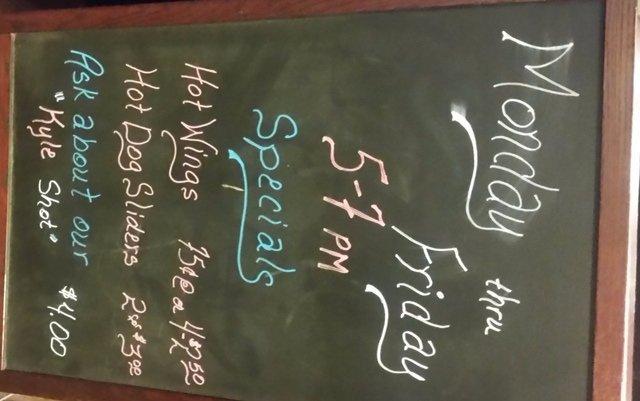 Monday
thru
Friday
5-7 PM
Specials
Hot Wings 75¢ea 4-$2.50
Hot Dog Sliders 2 for $3.00
Ask about our
"Kyle Shot" $4.00